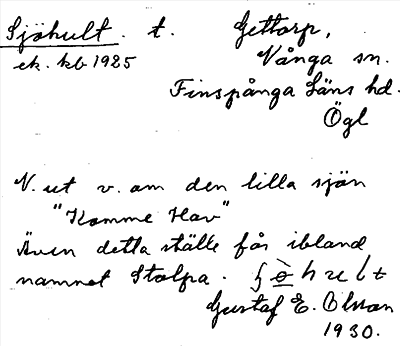 Sjöhult. t. Gettorp,
ek. kb 1925 Vånga sn.
Finspånga Läns hd.
Ögl
N. ut v. om den lilla sjön
"Komme Hav"
Även detta ställe får ibland
namnet Stolpa.
Gustaf E. Olsson
1930.